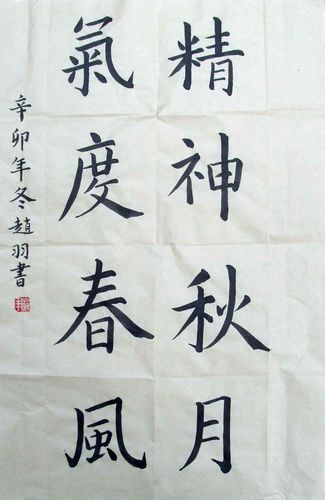 精神秋月
氣度春風
辛卯年冬趙羽書